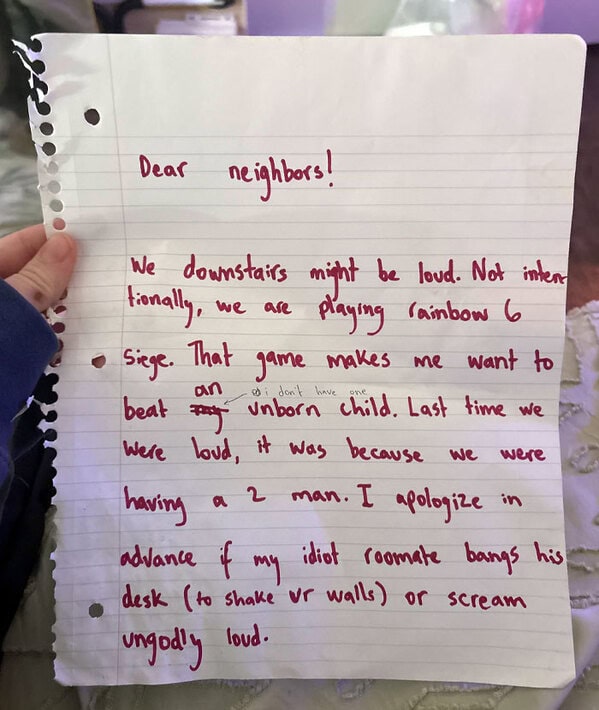 Dear neighbors!
We downstairs might be loud. Not inten-
tionally, we are playing rainbow 6
Siege. That game makes me want to
an i don't have one
beat my unborn child. Last time we
were loud, it was because we were
having a 2 man. I apologize in
advance if my idiot roomate bangs his
desk (to shake ur walls) or scream
ungodly loud.